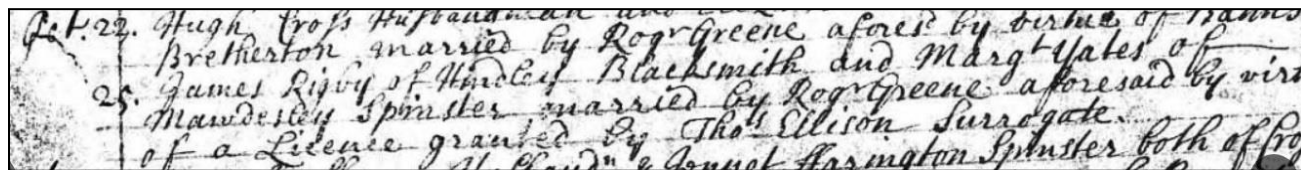 Oct. 22. Hugh Cross Husbandman and
Bretherton married by Rogr Greene afores.d by virtue of Banns
25. James Rigby of Hindley Blacksmith and Margt Yates of
Mawdesley Spinster married by Rogr Greene aforesaid by virt
of a Licence granted by Thos Ellison Surrogate.
& Jennet Harington Spinster both of Cro